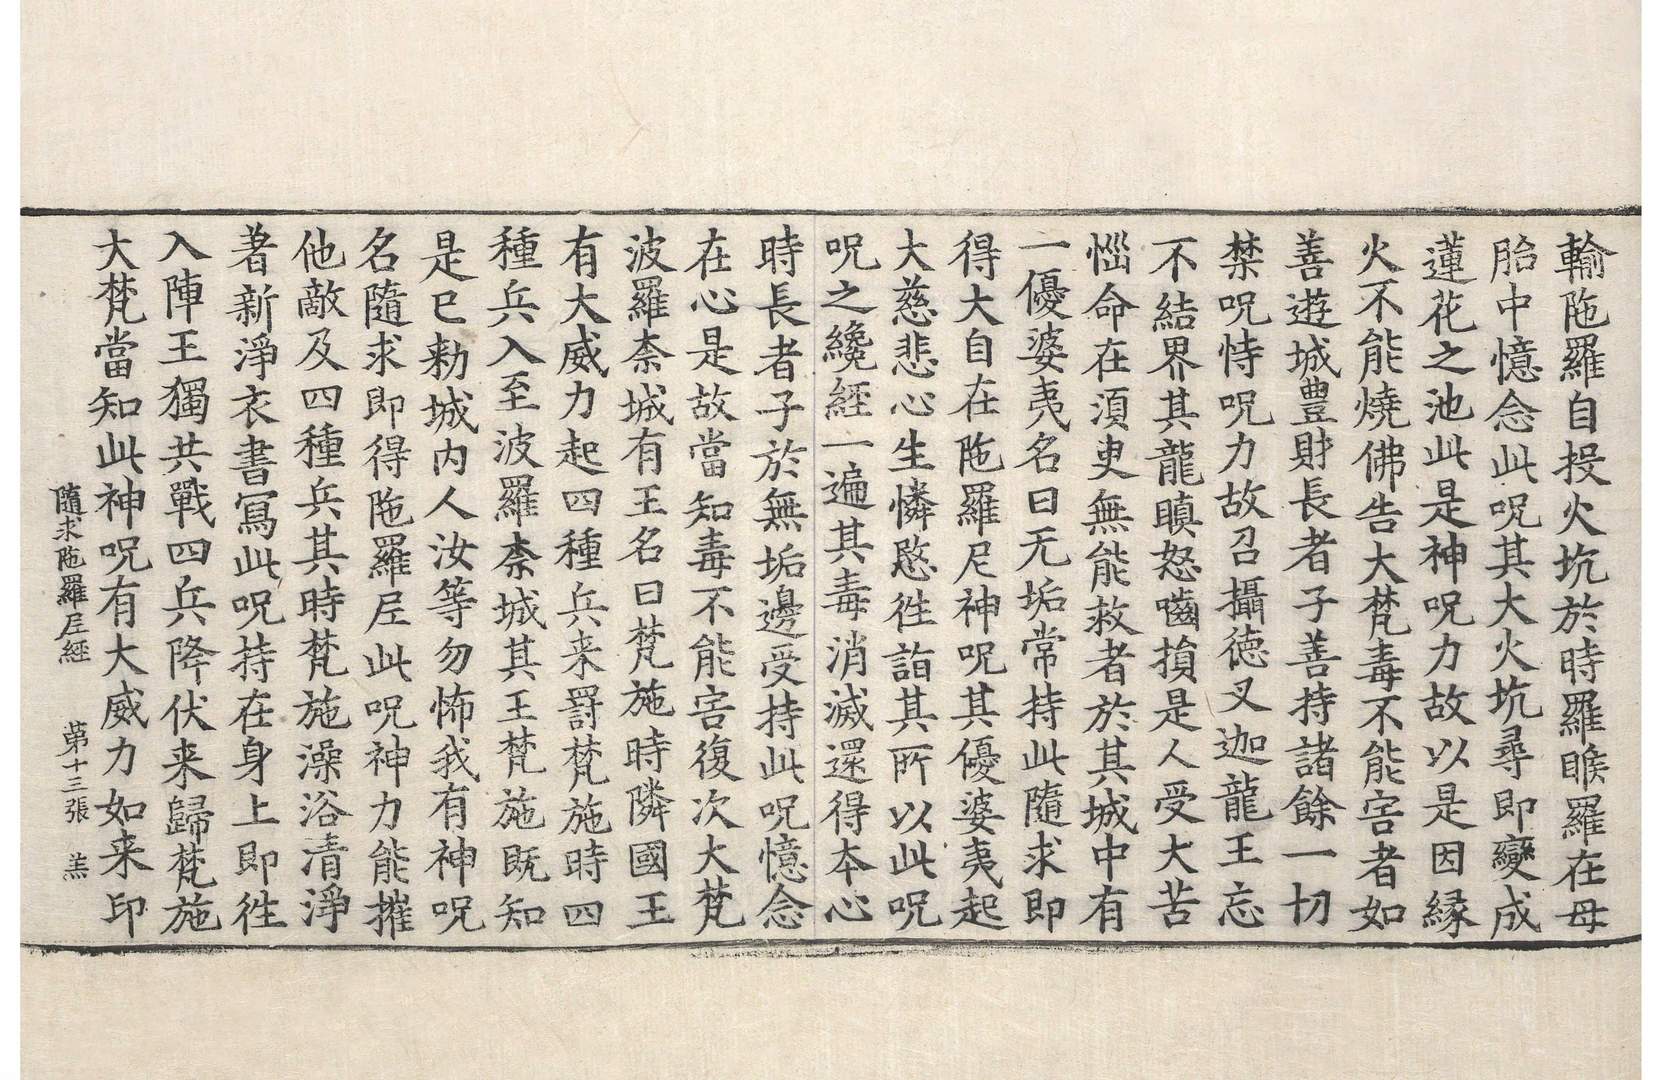 輸陁羅自投火坑於時羅睺羅在母
胎中憶念此呪其大火坑尋即變成
蓮花之池此是神呪力故以是因縁
火不能燒佛告大梵毒不能害者如
善遊城豊財長者子善持諸餘一切
禁呪恃呪力故召攝德叉迦龍王忘
不結界其龍瞋怒嚙損是人受大苦
惱命在須臾無能救者於其城中有
一優婆夷名曰无垢常持此隨求即
得大自在陁羅尼神呪其優婆夷起
大慈悲心生憐愍徃詣其所以此呪
呪之纔經一遍其毒消滅還得本心
時長者子於無垢邊受持此呪憶念
在心是故當知毒不能害復次大梵
波羅柰城有王名曰梵施時隣國王
有大威力起四種兵来罸梵施時四
種兵入至波羅柰城其王梵施既知
是已勑城內人汝等勿怖我有神呪
名隨求即得陁羅尼此呪神力能摧
他敵及四種兵其時梵施澡浴清淨
著新淨衣書寫此呪持在身上即徃
入陣王獨共戰四兵降伏来歸梵施
大梵當知此神呪有大威力如来印
隨求陁羅尼經 第十三張 羔